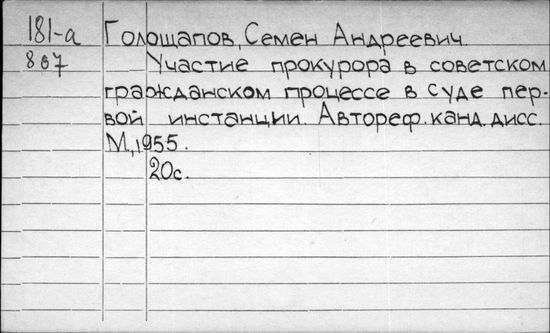 181-а Голощапов, Семен Андреевич.
867 Участие прокурора в советском
гражданском процессе в суде пер-
вой инстанции. Автореф. канд. дисс.
М., 1955.
20с.